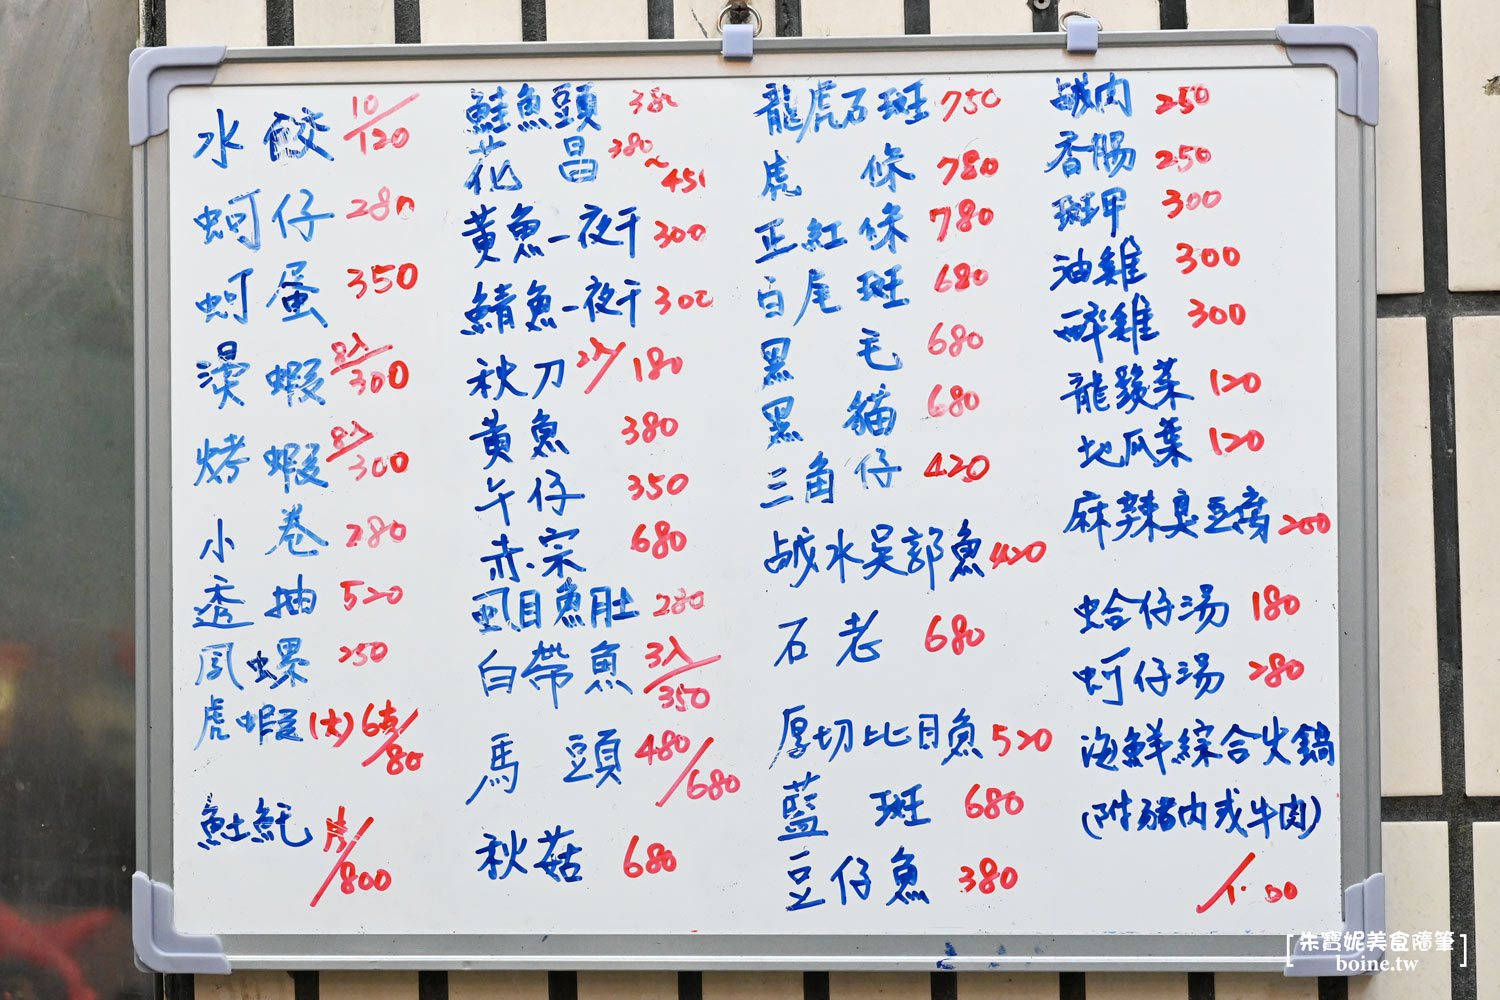 水餃 10/120
蚵仔 280
蚵蛋 350
燙蝦 8入/300
烤蝦 8入/300
小卷 280
透抽 520
鳳螺 250
虎蝦(大) 6/80
魠 /800
鮭魚頭 380
花昌 380~450
黃魚一夜干 300
鯖魚一夜干 300
秋刀 2入/180
黃魚 380
午仔 350
赤宗 680
虱目魚肚 280
白帶魚 3入/350
馬頭 480/680
秋菇 680
龍虎石斑 750
虎條 780
正紅條 780
白尾斑 680
黑毛 680
黑貓 680
三角仔 420
鹹水吳郭魚 420
石老 680
厚切比目魚 520
藍斑 680
豆仔魚 380
鹹肉 250
香腸 250
斑甲 300
油雞 300
醉雞 300
龍鬚菜 120
地瓜葉 120
麻辣臭豆腐 200
蛤仔湯 180
蚵仔湯 280
海鮮綜合火鍋
(附豬肉或牛肉)
[朱寶妮美食隨筆]
boine.tw